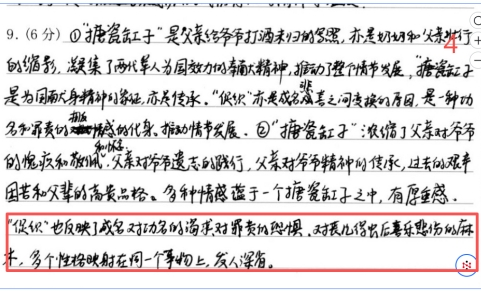 9.(6分) ①"搪瓷缸子"是父亲给爷爷打酒来归的写照,亦是奶奶和父亲性行
4
的缩影,凝集了两代军人为国效力的奉献精神,推动了整个情节发展,"搪瓷缸子"
是为国献身精神的象征,亦是传承。"促织"亦是成名悲喜之间变换的原因,是一种功
名和罪责的情感的代身。推动情节发展。②"搪瓷缸子"浓缩了父亲对爷爷
的愧疚和敬佩,父亲对爷爷遗志的践行,父亲对爷爷精神的传承,过去的艰辛
困苦和父辈的高贵品格。多种情感溢于一个搪瓷缸子之中,有厚重感。
"促织"也反映了成名对功名的渴求对罪责的恐惧,对其儿得出后喜乐悲伤的麻
木,多个性格映射在同一个事物上,发人深省。